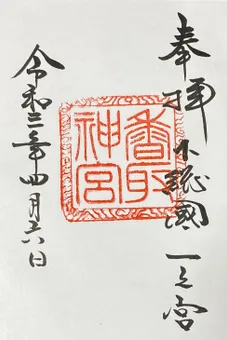 奉拝 下総國 一之宮
香取神宮
令和三年四月六日